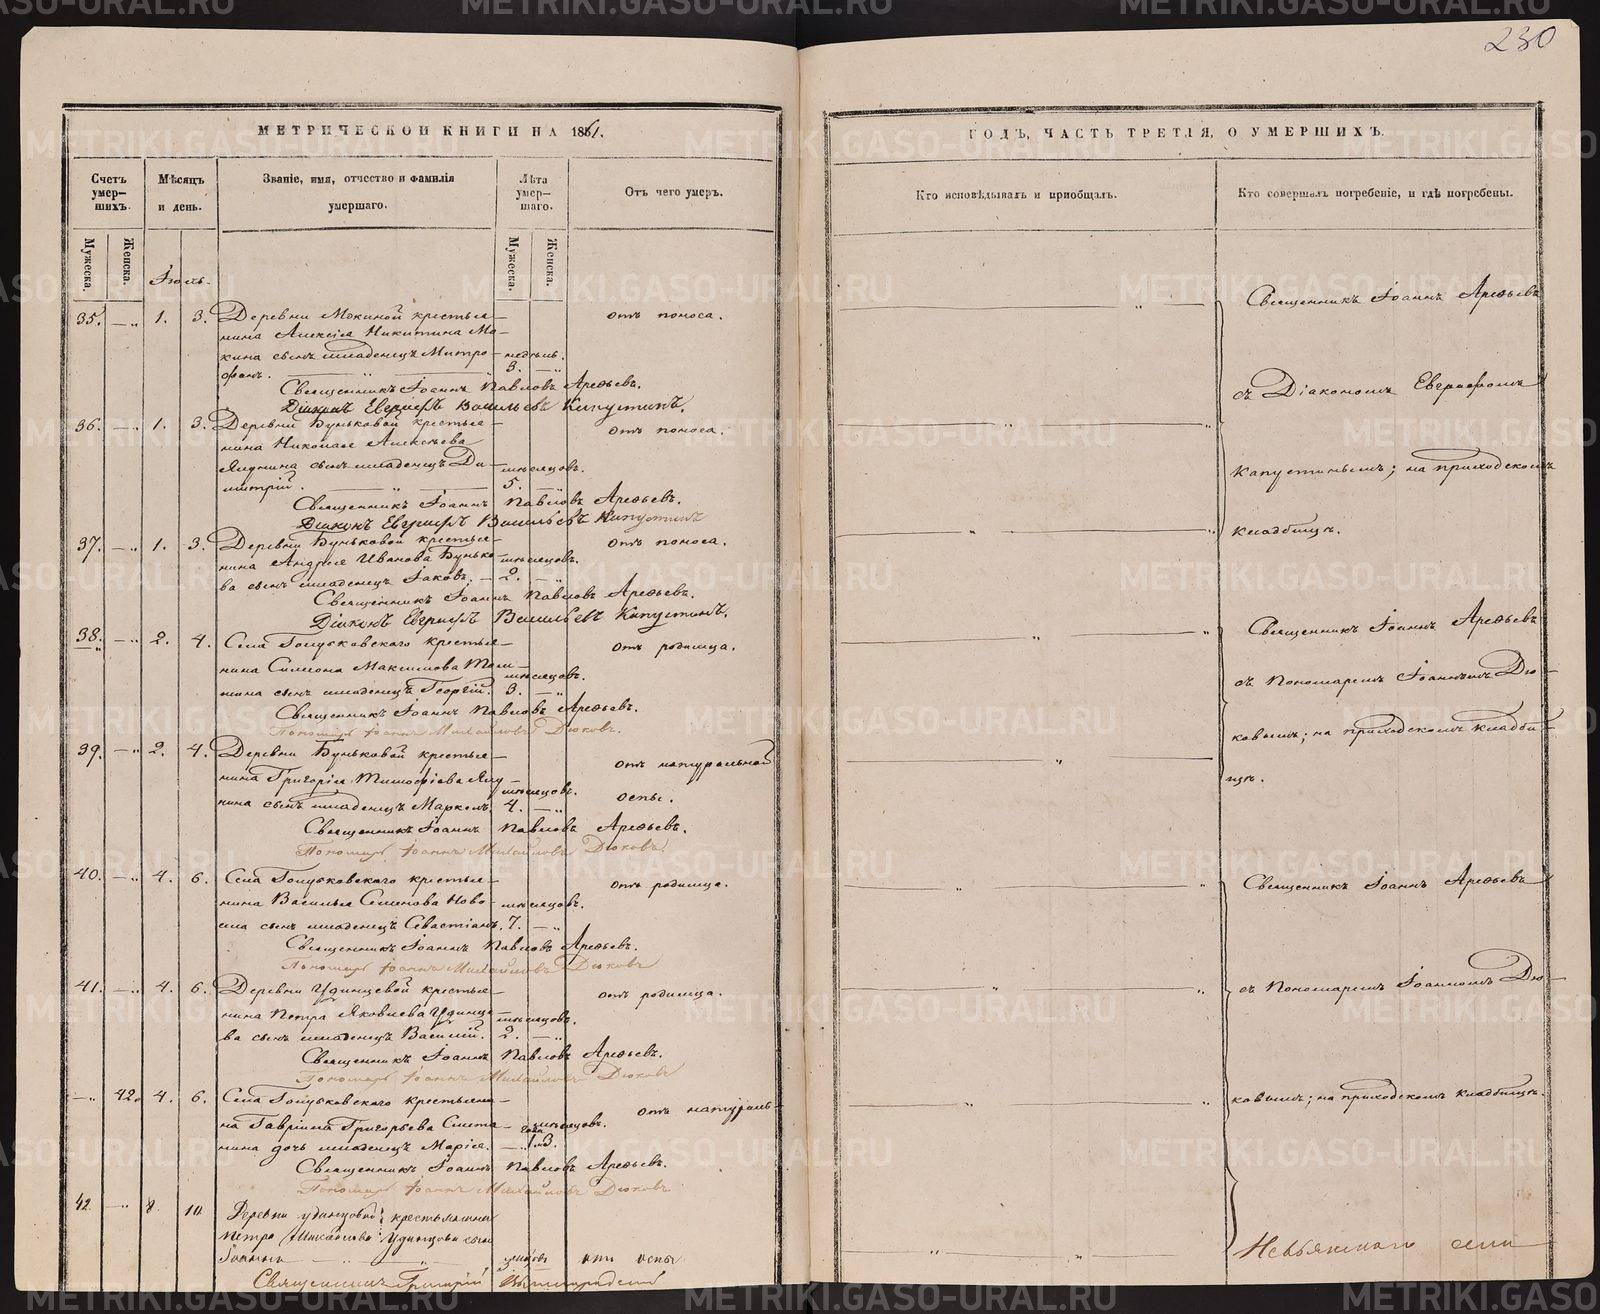 230
МЕТРИЧЕСКОЙ КНИГИ НА 1861.
Счетъ умер-шихъ.
Мѣсяцъ и день.
Званіе, имя, отчество и фамилія умершаго.
Лѣта умер-шаго.
Отъ чего умеръ.
Мужеска.
Женска.
Мужеска.
Женска.
Іюль.
35. — „ 1. 3. Деревни Мокиной крестья- отъ поноса.
нина Алексѣя Никитина Мо-
кина сынъ младенецъ Митро- недѣль.
фанъ. — „ — 3. — „
Священникъ Іоаннъ Павловъ Арефьевъ.
Діаконъ Евграфъ Васильевъ Капустинъ.
36. — „ 1. 3. Деревни Буньковой крестья- отъ поноса.
нина Николая Алексѣева
Ялунина сынъ младенецъ Ди- мѣсяцовъ.
митрій. — „ — 5. — „
Священникъ Іоаннъ Павловъ Арефьевъ.
Діаконъ Евграфъ Васильевъ Капустинъ
37. — „ 1. 3. Деревни Буньковой крестья- отъ поноса.
нина Андрея Иванова Бунько- мѣсяцовъ.
ва сынъ младенецъ Іаковъ. — 2. — „
Священникъ Іоаннъ Павловъ Арефьевъ.
Діаконъ Евграфъ Васильевъ Капустинъ.
38. — „ 2. 4. Села Голубковскаго крестья- отъ родимца.
нина Симеона Максимова
сынъ младенецъ Георгій. 3. — „ мѣсяцовъ.
Священникъ Іоаннъ Павловъ Арефьевъ.
Пономарь Іоаннъ Михайловъ Дюковъ.
39. — „ 2. 4. Деревни Буньковой крестья- отъ натуральной
нина Григорія Тимофѣева Ялу- мѣсяцовъ.
нина сынъ младенецъ Маркелъ. 4. — „ оспы.
Священникъ Іоаннъ Павловъ Арефьевъ.
Пономарь Іоаннъ Михайловъ Дюковъ.
40. — „ 4. 6. Села Голубковскаго крестья- отъ родимца.
нина Василья Семенова Ново- мѣсяцовъ.
села сынъ младенецъ Севастіанъ. 7. — „
Священникъ Іоаннъ Павловъ Арефьевъ.
Пономарь Іоаннъ Михайловъ Дюковъ
41. — „ 4. 6. Деревни Удинцевой крестья- отъ родимца.
нина Петра Яковлева Удинце- мѣсяцовъ.
ва сынъ младенецъ Василій. 2. — „
Священникъ Іоаннъ Павловъ Арефьевъ.
Пономарь Іоаннъ Михайловъ Дюковъ
— „ 42. 4. 6. Села Голубковскаго крестьяни- отъ натураль-
на Гавріила Григорьева Смета- мѣсяцовъ.
нина дочь младенецъ Марія. — „ 1. 3.
Священникъ Іоаннъ Павловъ Арефьевъ.
Пономарь Іоаннъ Михайловъ Дюковъ
42 — „ 8. 10. Деревни Удинцовой крестьянина
Петра Михайлова Удинцова сынъ
Іоаннъ отъ оспы
Священникъ Григорій
ГОДЪ, ЧАСТЬ ТРЕТІЯ, О УМЕРШИХЪ.
Кто исповѣдывалъ и пріобщалъ.
Кто совершалъ погребеніе, и гдѣ погребены.
Священникъ Іоаннъ Арефьевъ
съ Діакономъ Евграфомъ
Капустинымъ; на приходскомъ
кладбищѣ.
Священникъ Іоаннъ Арефьевъ
съ Пономаремъ Іоанномъ Дю-
ковымъ; на приходскомъ кладби-
щѣ.
Священникъ Іоаннъ Арефьевъ
съ Пономаремъ Іоанномъ Дю-
ковымъ; на приходскомъ кладбищѣ.
Невьянскаго села
METRIKI.GASO-URAL.RU